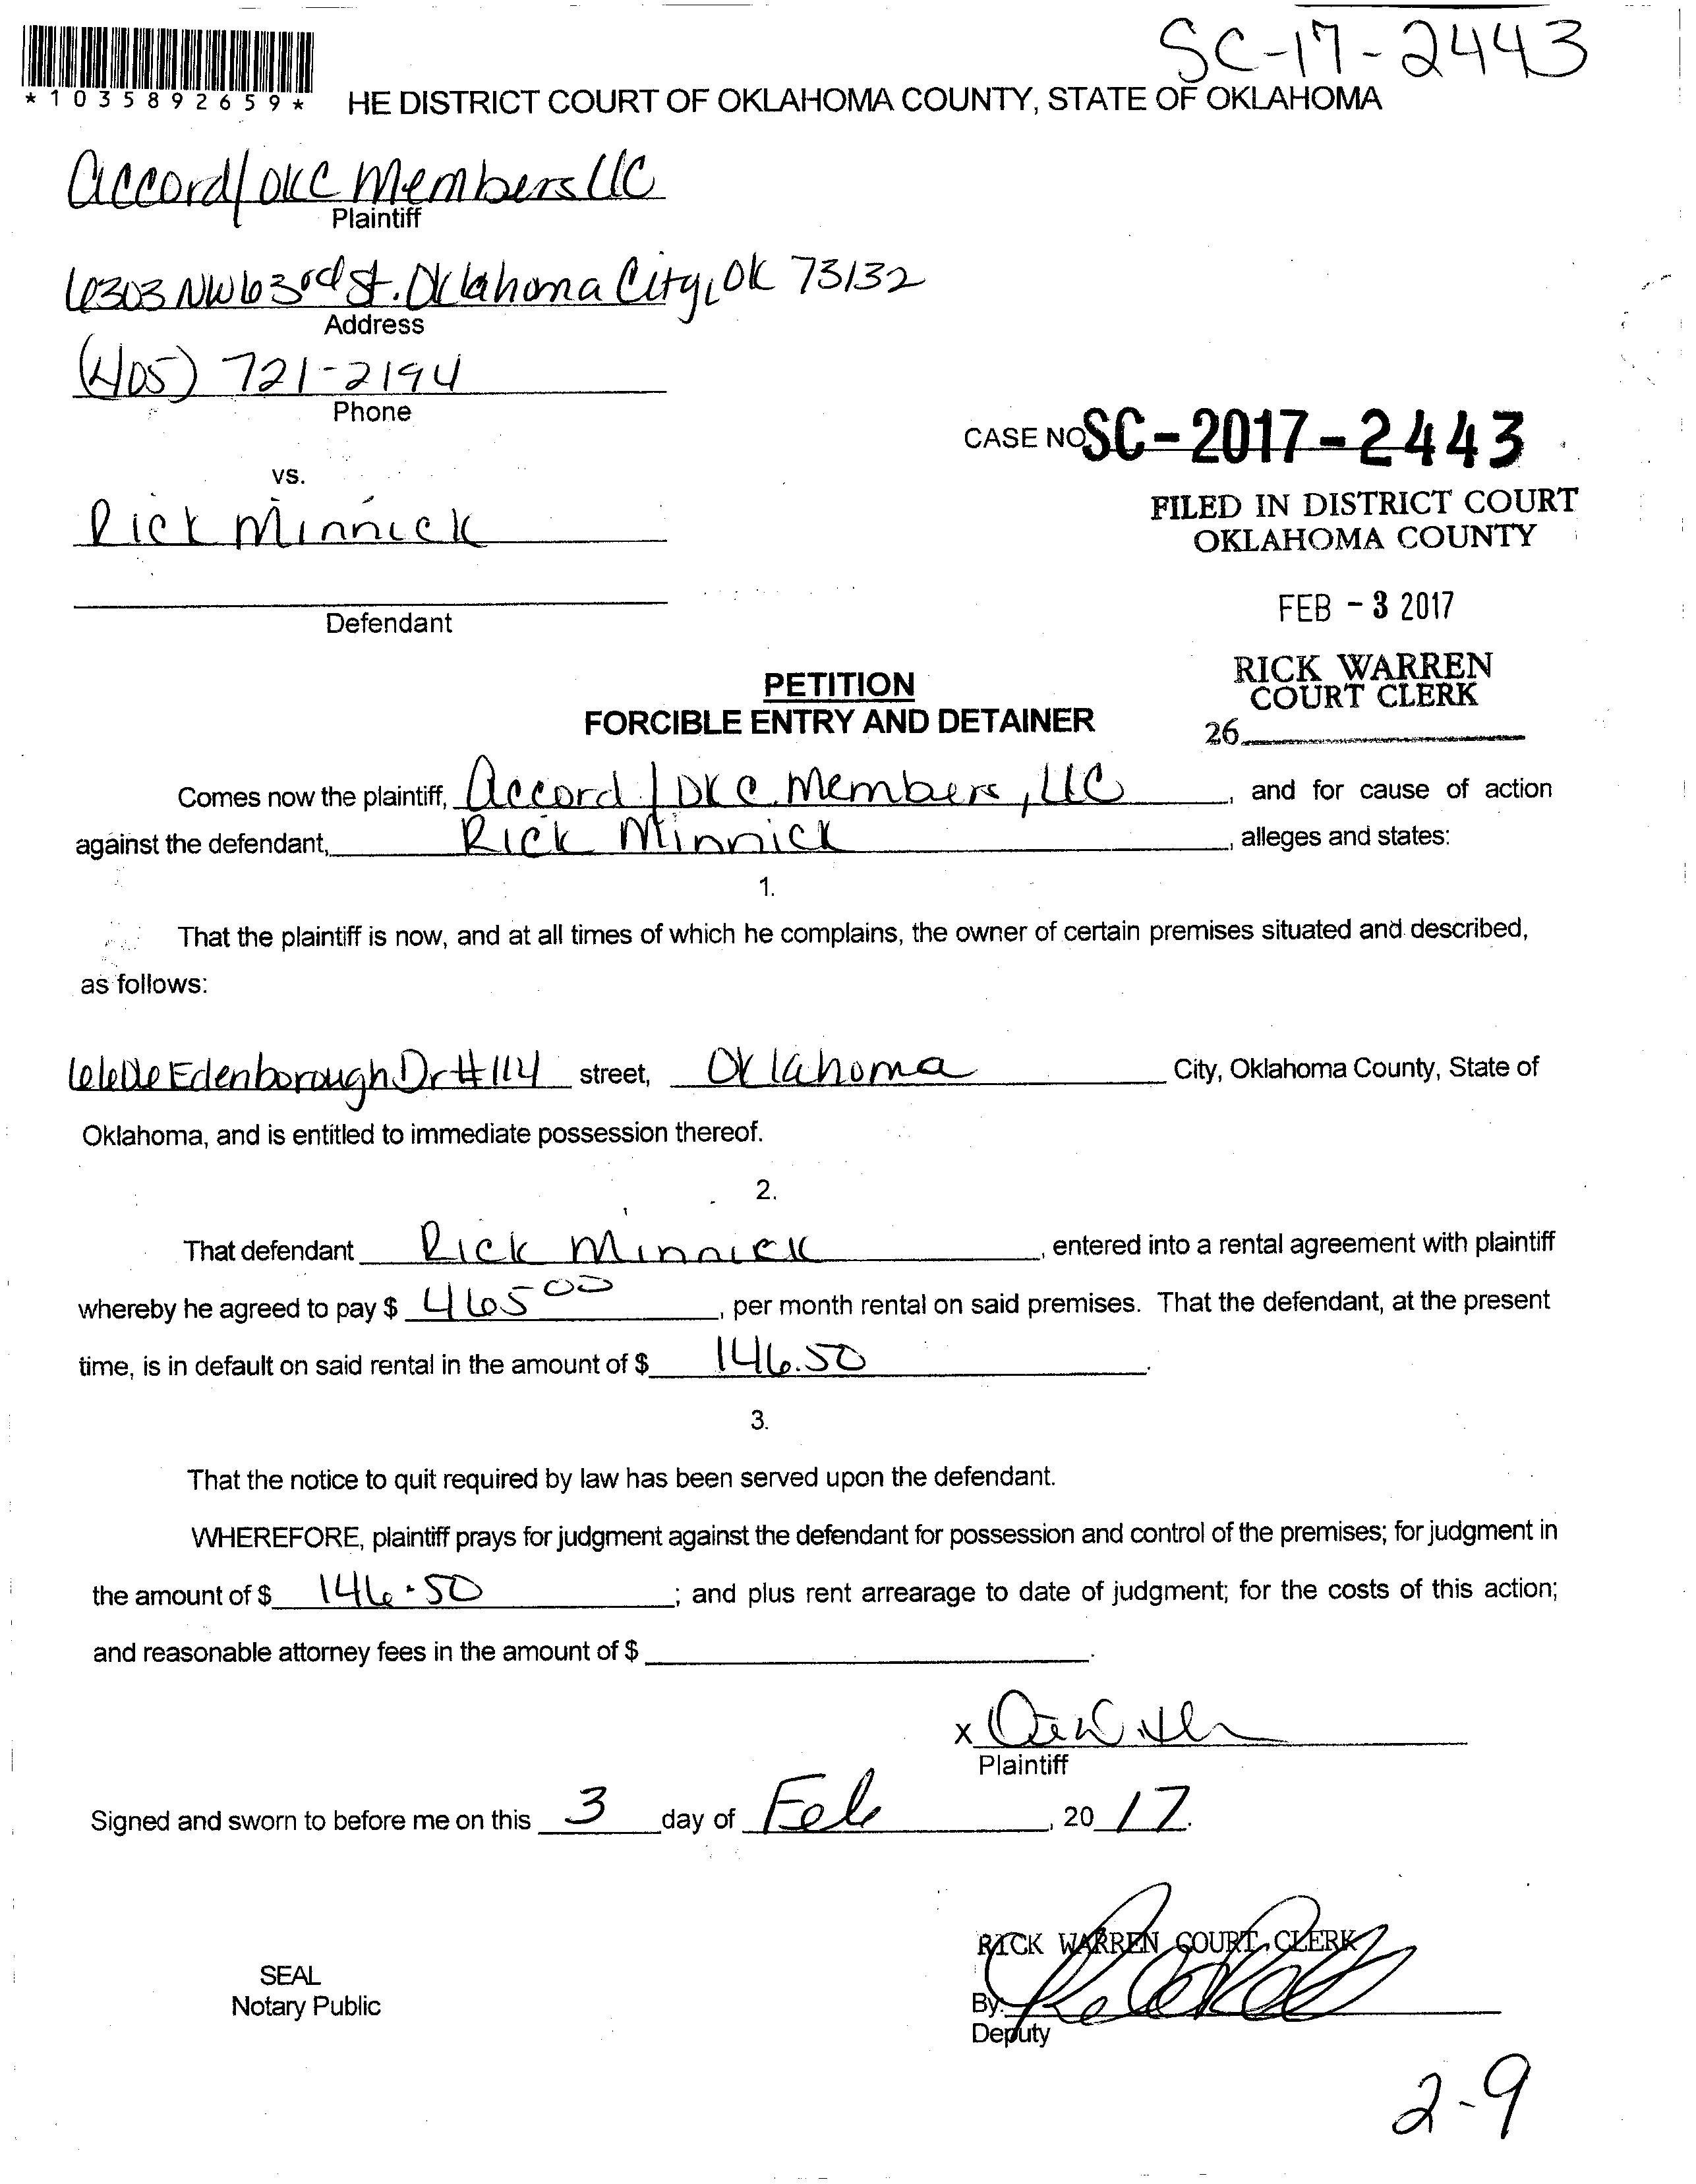 SC-17-2443
*1035892659*
HE DISTRICT COURT OF OKLAHOMA COUNTY, STATE OF OKLAHOMA
Accord/OKC Members LLC
Plaintiff
6303 NW 63rd St. Oklahoma City, OK 73132
Address
(405) 721-2194
Phone
CASE NO SC-2017-2443
vs.
FILED IN DISTRICT COURT
OKLAHOMA COUNTY
Rick Minnick
FEB - 3 2017
Defendant
RICK WARREN
COURT CLERK
26
PETITION
FORCIBLE ENTRY AND DETAINER
Comes now the plaintiff, Accord/OKC Members, LLC, and for cause of action
against the defendant, Rick Minnick, alleges and states:
1.
That the plaintiff is now, and at all times of which he complains, the owner of certain premises situated and described,
as follows:
Edenborough Dr #114 street, Oklahoma City, Oklahoma County, State of
Oklahoma, and is entitled to immediate possession thereof.
2.
That defendant Rick Minnick, entered into a rental agreement with plaintiff
whereby he agreed to pay $ 465 00, per month rental on said premises. That the defendant, at the present
time, is in default on said rental in the amount of $ 146.50.
3.
That the notice to quit required by law has been served upon the defendant.
WHEREFORE, plaintiff prays for judgment against the defendant for possession and control of the premises; for judgment in
the amount of $ 146.50; and plus rent arrearage to date of judgment; for the costs of this action;
and reasonable attorney fees in the amount of $ .
X
Plaintiff
Signed and sworn to before me on this 3 day of Feb, 20 17.
RICK WARREN COURT CLERK
SEAL
Notary Public
By:
Deputy
2-9